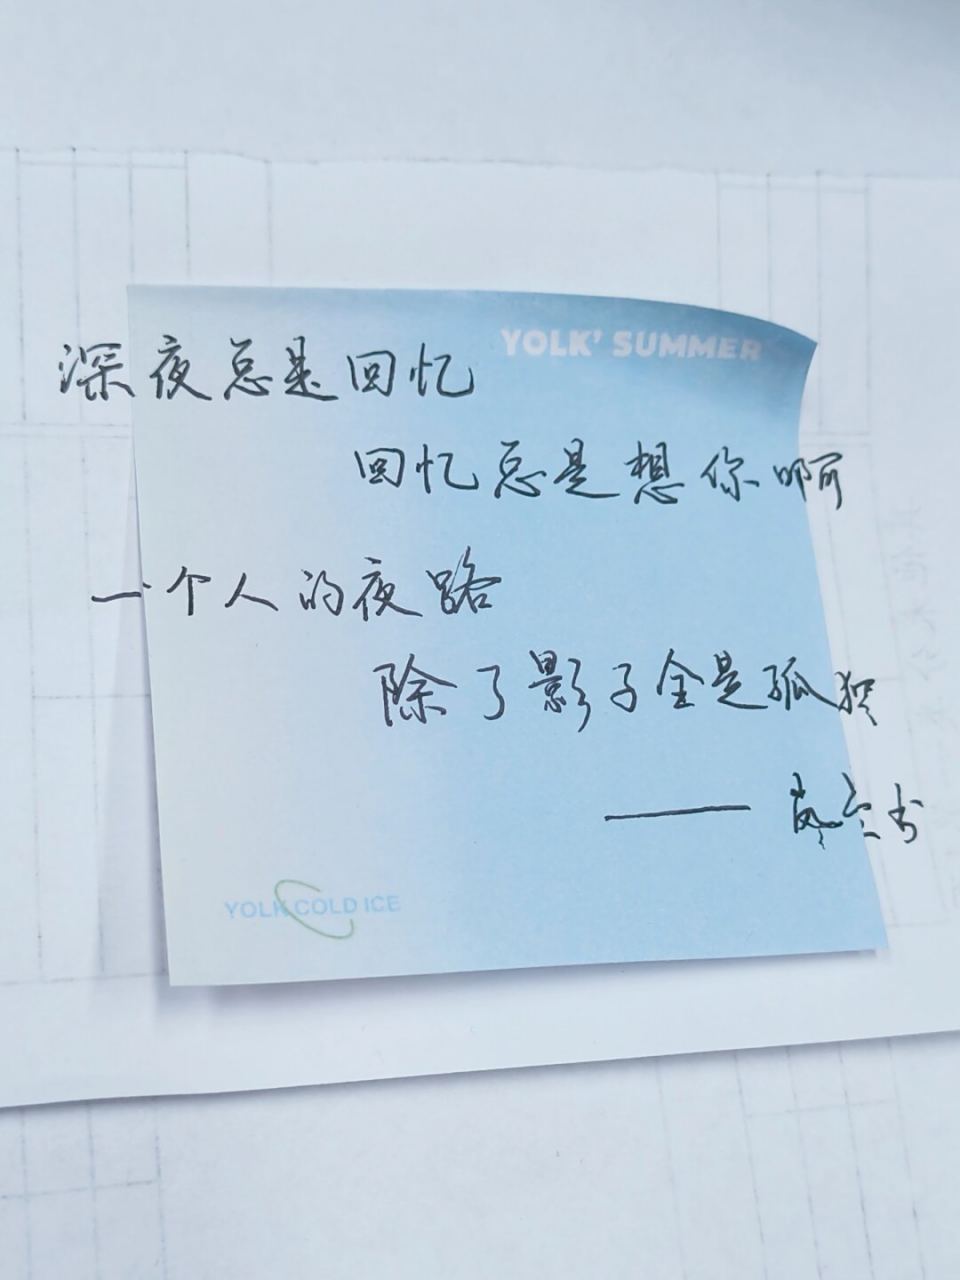 YOLK' SUMMER
深夜总是回忆
回忆总是想你啊
一个人的夜路
除了影子全是孤独
—— 书
YOLK COLD ICE